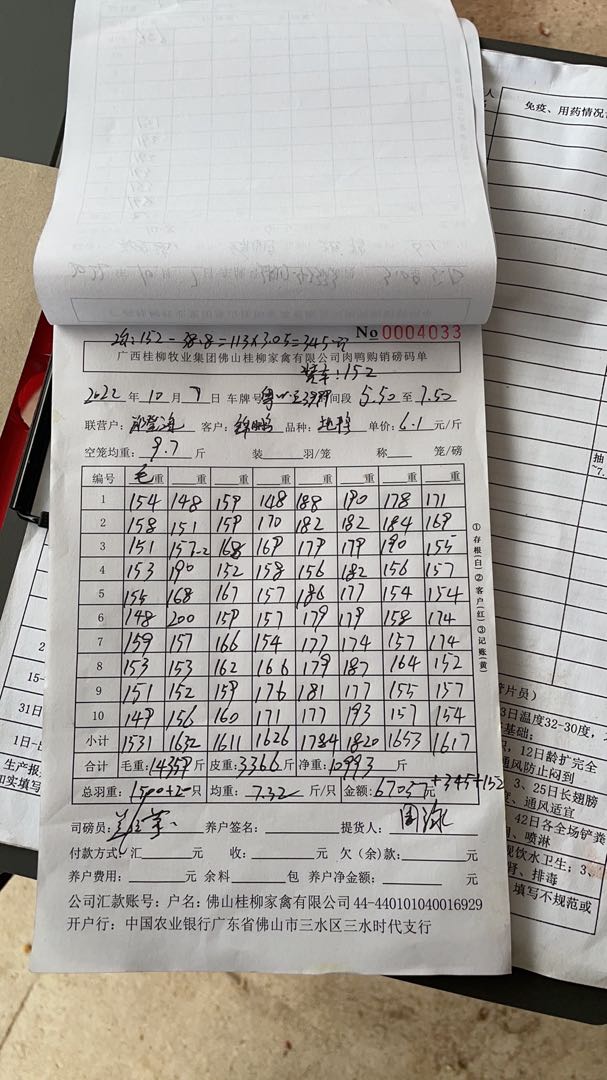 人
免疫、用药情况
152-38.8=113×3.05=345
No 0004033
广西桂柳牧业集团佛山桂柳家禽有限公司肉鸭购销磅码单
装车:152
2022 年 10 月 7 日 车牌号 时间段 5.50 至 7.50
联营户: 客户: 锦鹏 品种: 单价: 6.1 元/斤
空笼均重: 9.7 斤 装 羽/笼 称 笼/磅
编号 毛重 重 重 重 重 重 重 重
1 154 148 159 148 188 190 178 171
2 158 151 159 170 182 182 184 169
3 151 157-2 168 169 179 179 190 155
4 153 190 152 158 156 182 156 157
5 155 168 167 157 186 177 154 154
6 148 200 159 157 179 179 158 174
7 159 157 166 154 177 174 157 174
8 153 153 162 166 179 187 164 152
9 151 152 159 176 181 177 155 157
10 149 156 160 171 177 193 157 154
小计 1531 1632 1611 1626 1784 1820 1653 1617
合计 毛重: 14359 斤 皮重: 3366 斤 净重: 10993 斤
总羽重: 1500+2 只 均重: 7.32 斤/只 金额: 67057 元 +345+152
司磅员: 养户签名: 提货人:
付款方式: 汇 元 收: 元 欠(余)款: 元
养户费用: 元 余料 包 养户净金额: 元
公司汇款账号: 户名: 佛山桂柳家禽有限公司 44-440101040016929
开户行: 中国农业银行广东省佛山市三水区三水时代支行
①存根(白)②客户(红)③记账(黄)
抽
~7.
2
15-
31日
1日-
生产报
如实填写
管片员)
3日温度32-30度,
基础:
,12日龄扩完全
通风防止闷到
3、25日长翅膀
、通风适宜
42日各全场铲粪
、喷淋
现饮水卫生; 3、
肾、排毒
填写不规范或